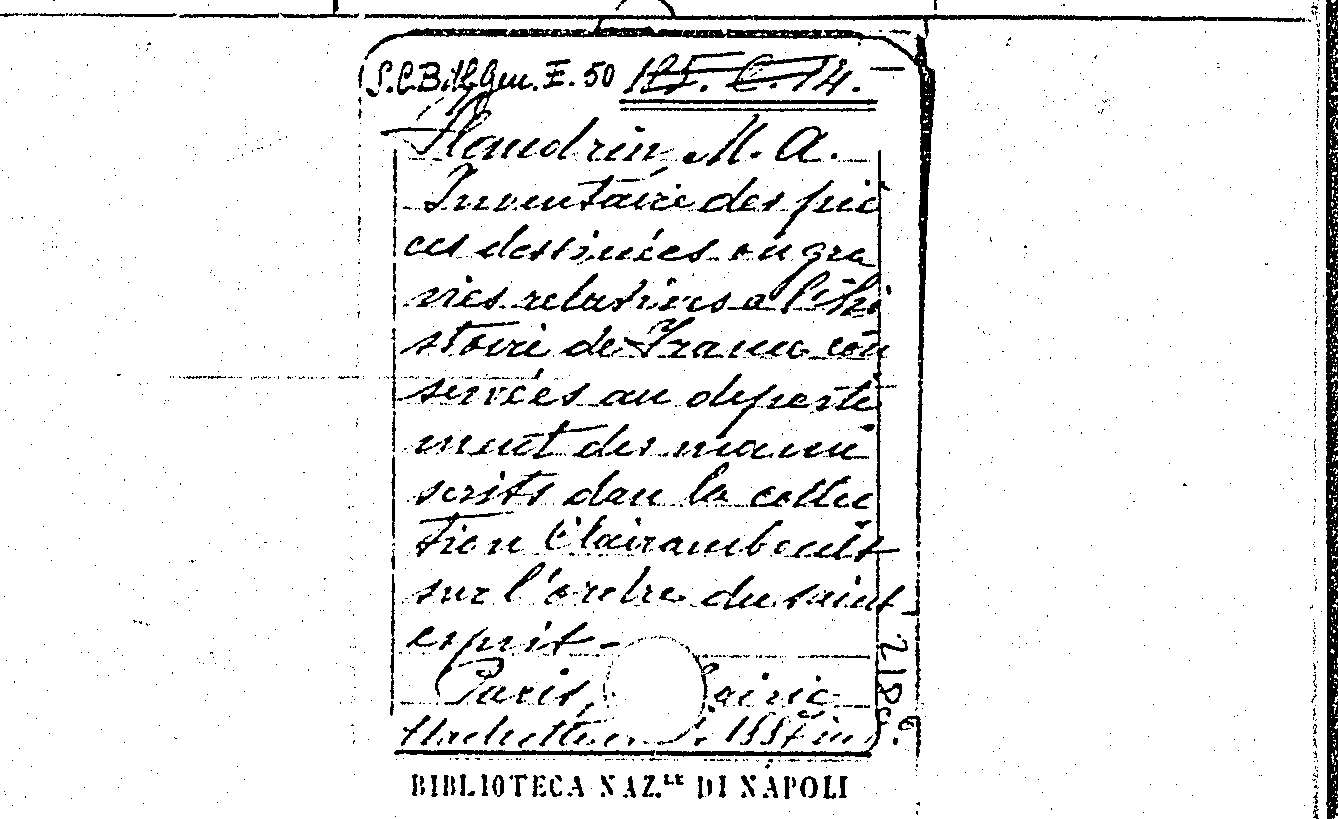 S.C. Bibl. Gen. E. 50 125. C. 14.
Flandrin M. A.
Inventaire des piè
ces dessinées ou gra
vées relatives a l'hi
stoire de France con
servées au departe
ment des manu
scrits dan la collec
tion Clairambault
sur l'ordre du saint-
esprit -
Paris,
Hachette 1887 in 8.º
218
BIBLIOTECA NAZ.LE DI NAPOLI